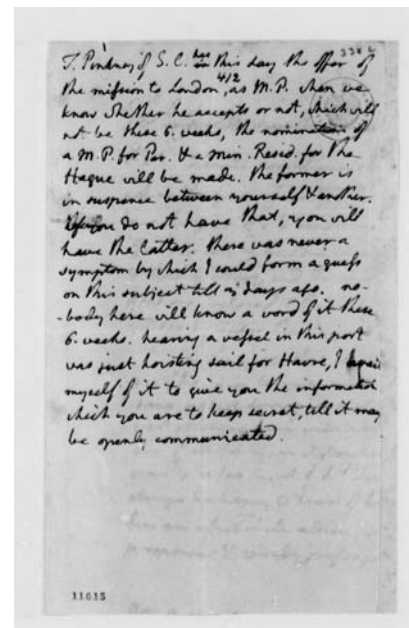 T. Pinkney of S. C. has this day the offer of
the mission to London, as M.P. when we
know whether he accepts or not, which will
not be these 6. weeks, the nomination of
a M.P. for Par. & a Min. Resid. for the
Hague will be made. the former is
in suspence between yourself & another.
you do not have that, you will
have the latter. there was never a
symptom by which I could form a guess
on this subject till days ago. no-
-body here will know a word of it these
6. weeks. hearing a vessel in this port
was just hoisting sail for Havre, I avail
myself of it to give you the information
which you are to keep secret, till it may
be openly communicated.
11615